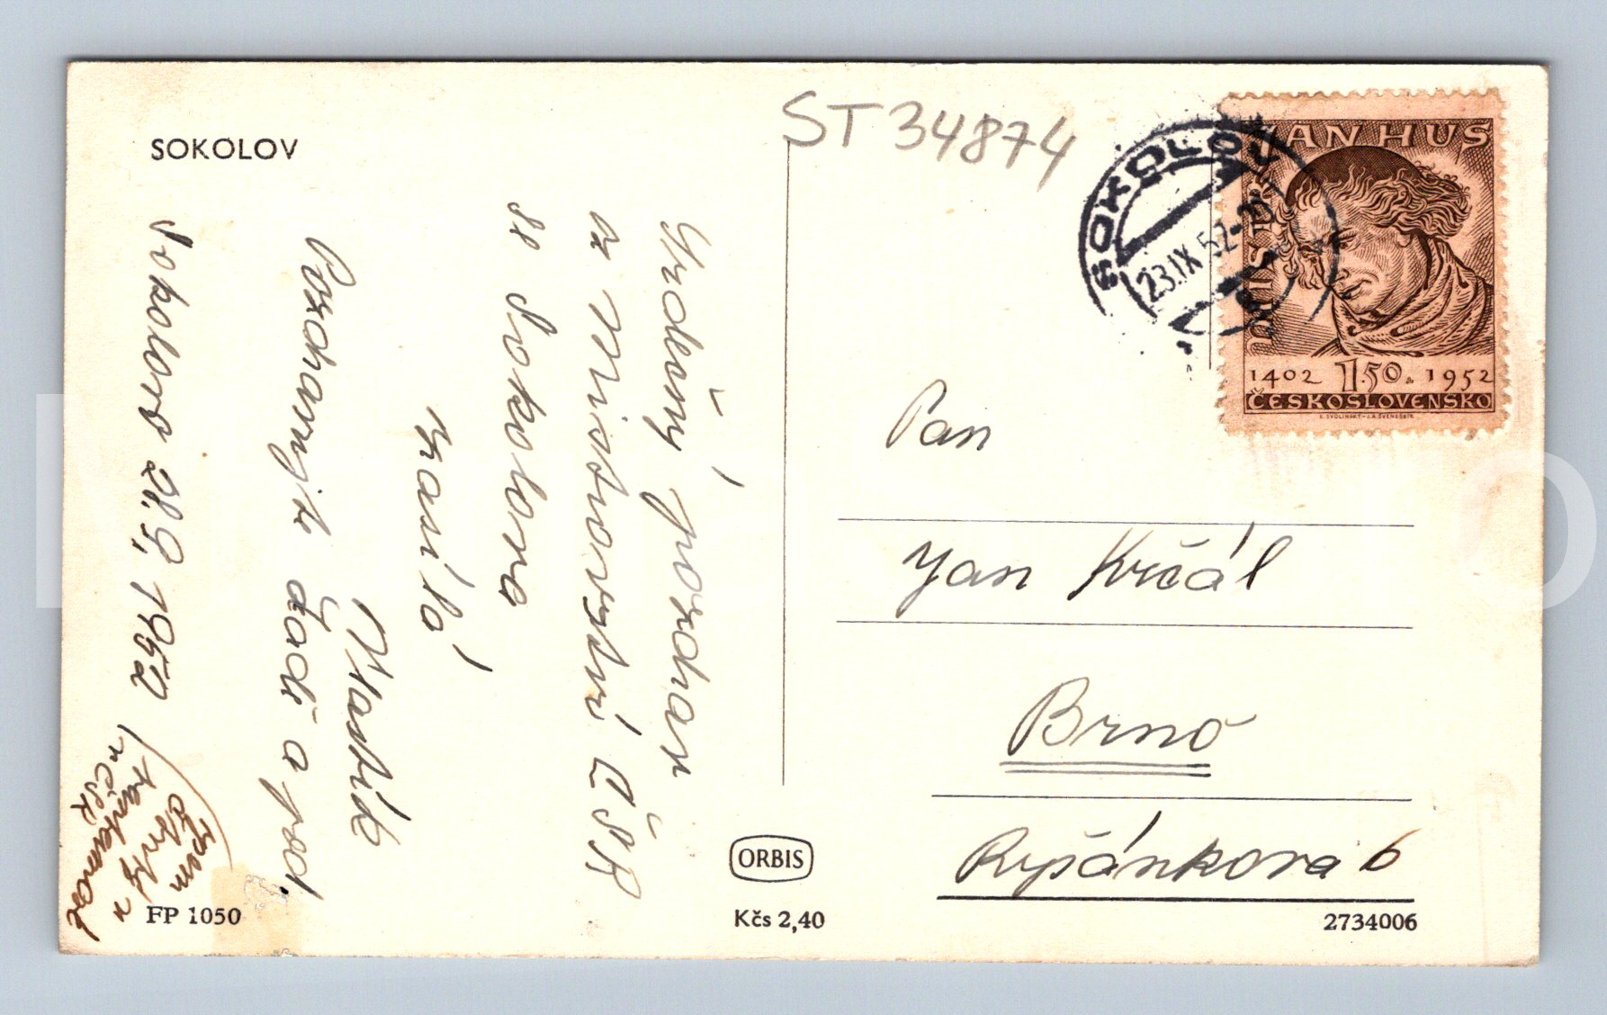 SOKOLOV
ST 34874
Srdečný pozdrav
z Mistrovství ČSR
ze Sokolova
zasílá
Vlastík
Pozdravujte
a
Sokolovo 21.9. 1952
SOKOLOV
23.IX.52
MISTR JAN HUS
1402 1.50 1952
ČESKOSLOVENSKO
Pan
Jan Krčál
Brno
Rypánkova 6
ORBIS
FP 1050
Kčs 2,40
2734006